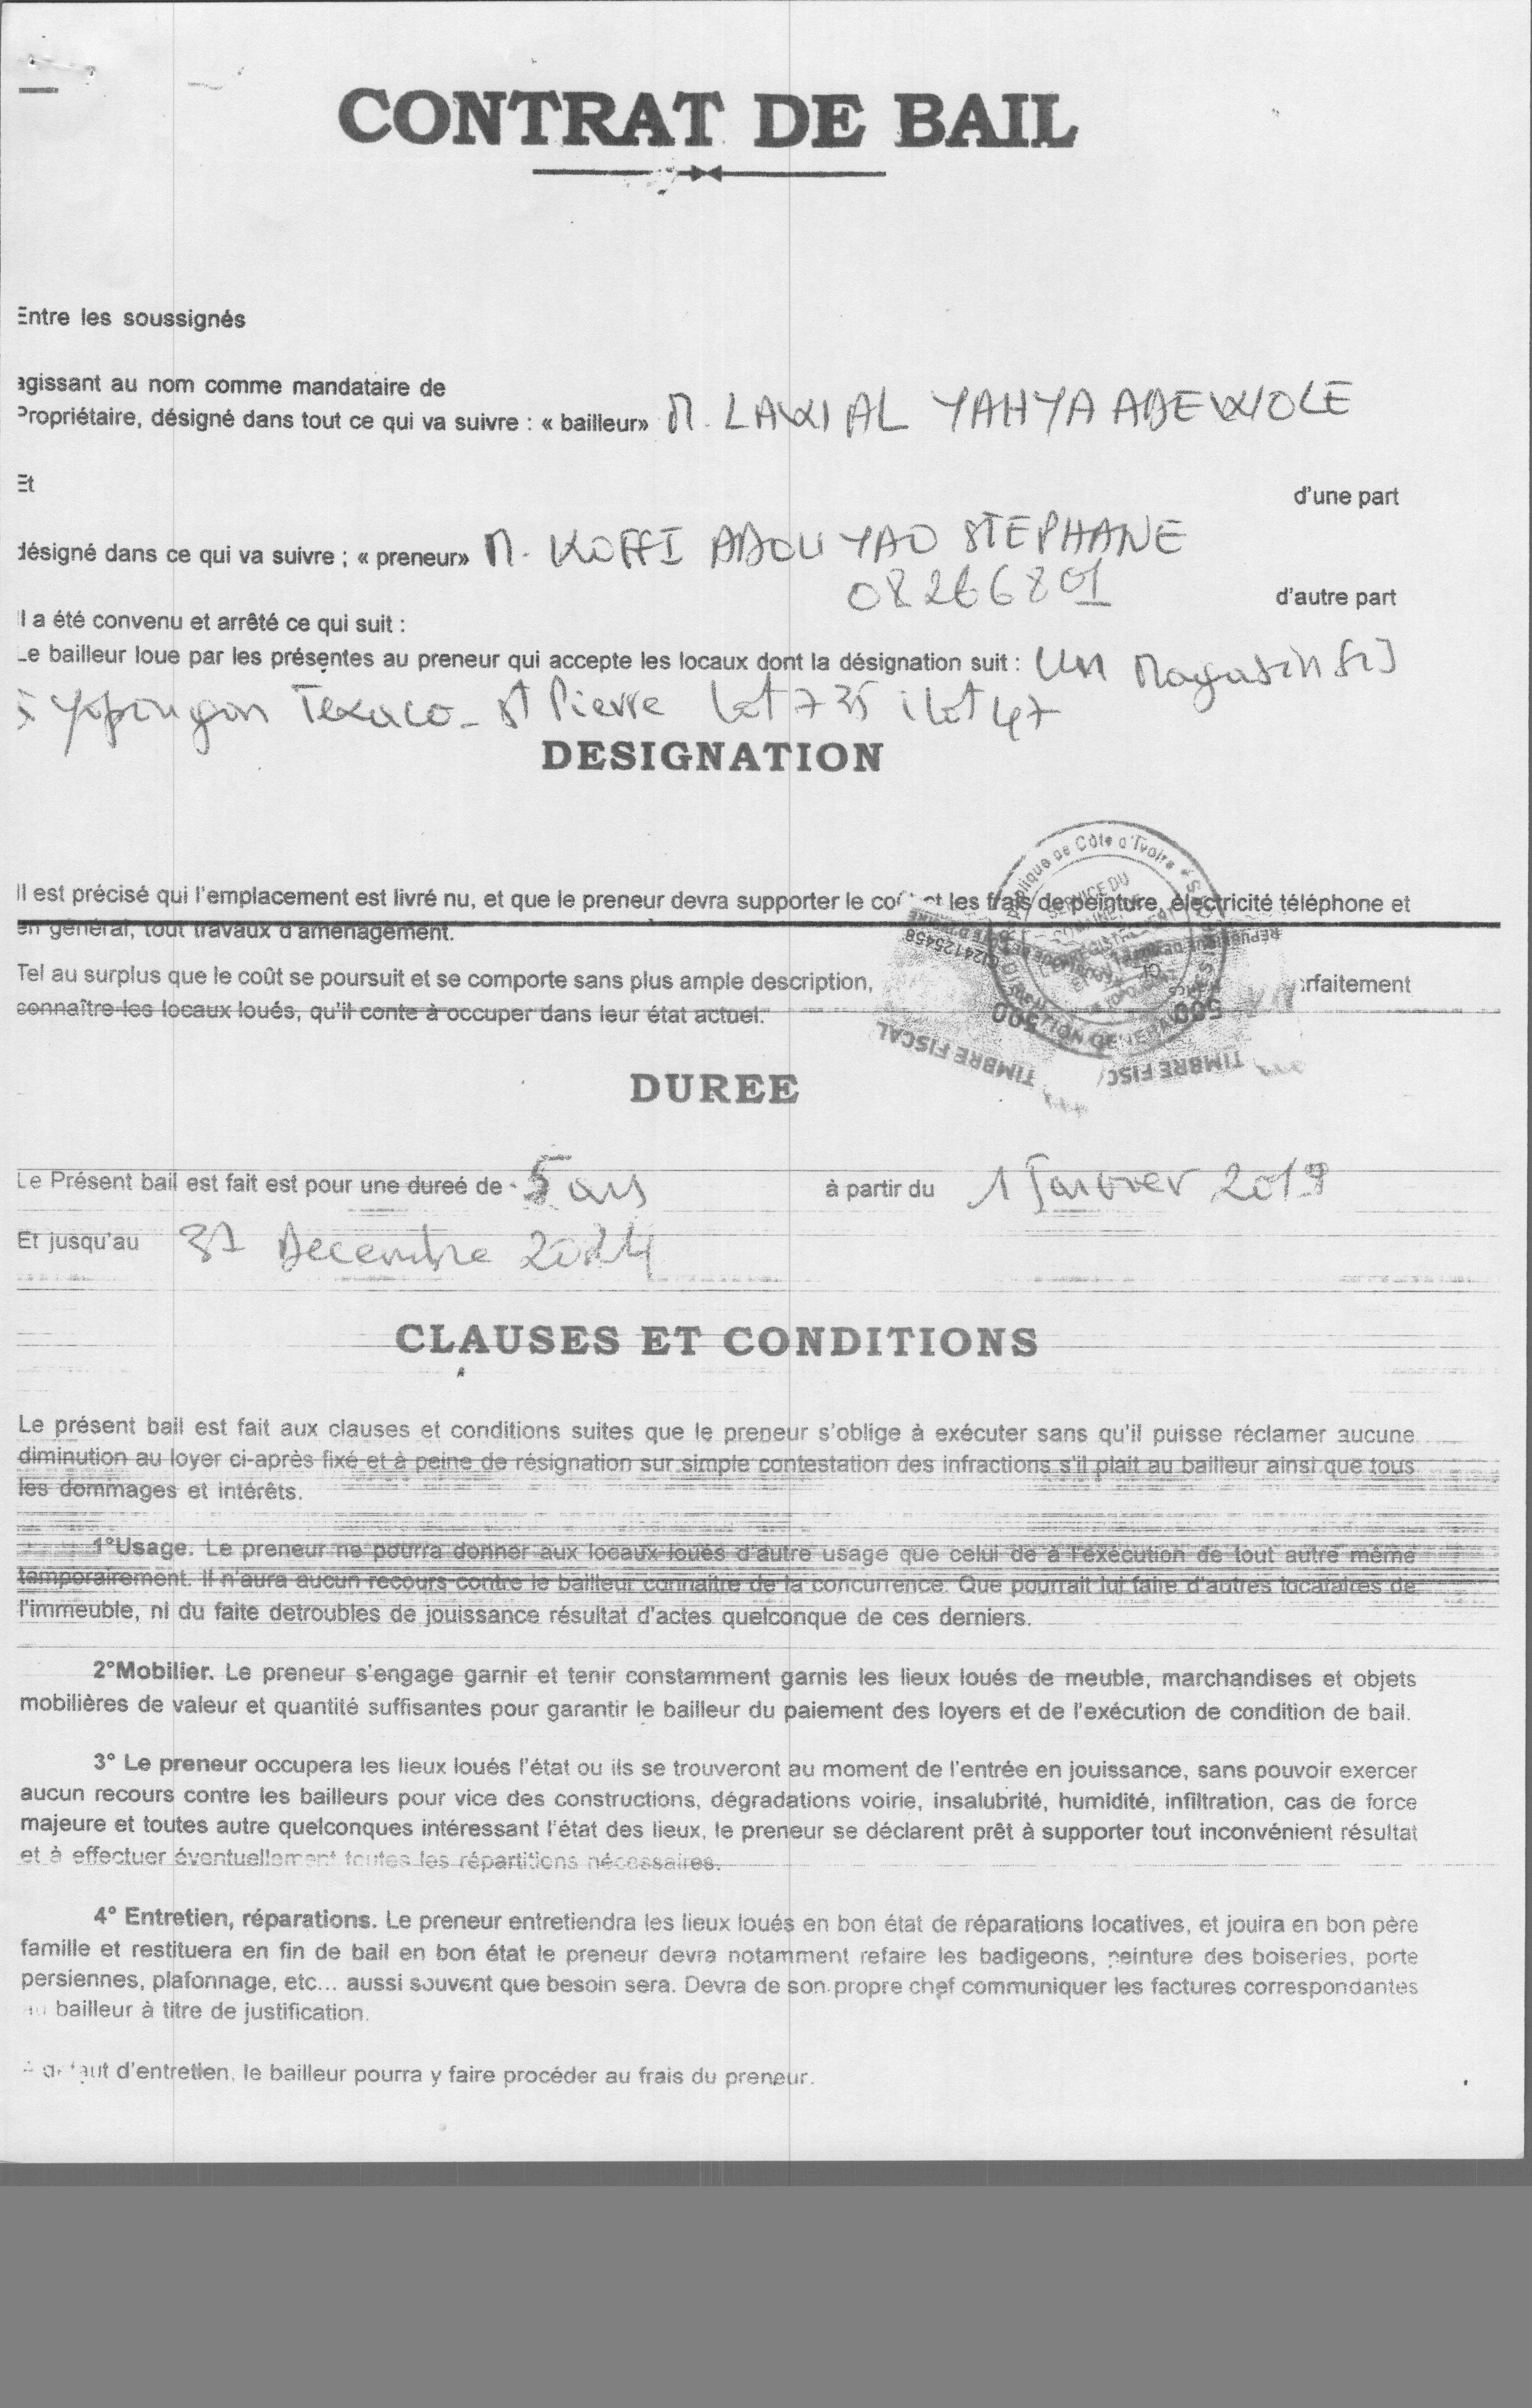 CONTRAT DE BAIL
Entre les soussignés
agissant au nom comme mandataire de
Propriétaire, désigné dans tout ce qui va suivre : « bailleur» M. LAWAL YAHYA ADEWOLE
Et
d'une part
désigné dans ce qui va suivre ; « preneur» M. KOFFI ADOU YAO STEPHANE
08266801
d'autre part
Il a été convenu et arrêté ce qui suit :
Le bailleur loue par les présentes au preneur qui accepte les locaux dont la désignation suit : Un Magasin
Yopougon Texaco - St Pierre lot 735 ilot 47
DESIGNATION
Il est précisé qui l'emplacement est livré nu, et que le preneur devra supporter le et les frais de peinture, électricité téléphone et
en général, tout travaux d'aménagement.
Tel au surplus que le coût se poursuit et se comporte sans plus ample description,
connaître les locaux loués, qu'il conte à occuper dans leur état actuel."
République de Côte d'Ivoire
SERVICE DU
500
500
TIMBRE FISCAL
TIMBRE FISC
DUREE
Le Présent bail est fait est pour une dureé de 5 ans à partir du 1 Janvier 2019
Et jusqu'au 31 Decembre 2024
CLAUSES ET CONDITIONS
Le présent bail est fait aux clauses et conditions suites que le preneur s'oblige à exécuter sans qu'il puisse réclamer aucune
diminution au loyer ci-après fixé et à peine de résignation sur simple contestation des infractions s'il plait au bailleur ainsi que tous
les dommages et intérêts.
1°Usage. Le preneur ne pourra donner aux locaux loués d'autre usage que celui de à l'exécution de tout autre même
temporairement. Il n'aura aucun recours contre le bailleur connaitre de la concurrence. Que pourrait lui faire d'autres locataires de
l'immeuble, ni du faite detroubles de jouissance résultat d'actes quelconque de ces derniers.
2°Mobilier. Le preneur s'engage garnir et tenir constamment garnis les lieux loués de meuble, marchandises et objets
mobilières de valeur et quantité suffisantes pour garantir le bailleur du paiement des loyers et de l'exécution de condition de bail.
3° Le preneur occupera les lieux loués l'état ou ils se trouveront au moment de l'entrée en jouissance, sans pouvoir exercer
aucun recours contre les bailleurs pour vice des constructions, dégradations voirie, insalubrité, humidité, infiltration, cas de force
majeure et toutes autre quelconques intéressant l'état des lieux, le preneur se déclarent prêt à supporter tout inconvénient résultat
et à effectuer éventuellement toutes les répartitions nécessaires.
4° Entretien, réparations. Le preneur entretiendra les lieux loués en bon état de réparations locatives, et jouira en bon père
famille et restituera en fin de bail en bon état le preneur devra notamment refaire les badigeons, peinture des boiseries, porte
persiennes, plafonnage, etc... aussi souvent que besoin sera. Devra de son propre chef communiquer les factures correspondantes
au bailleur à titre de justification.
A défaut d'entretien, le bailleur pourra y faire procéder au frais du preneur.